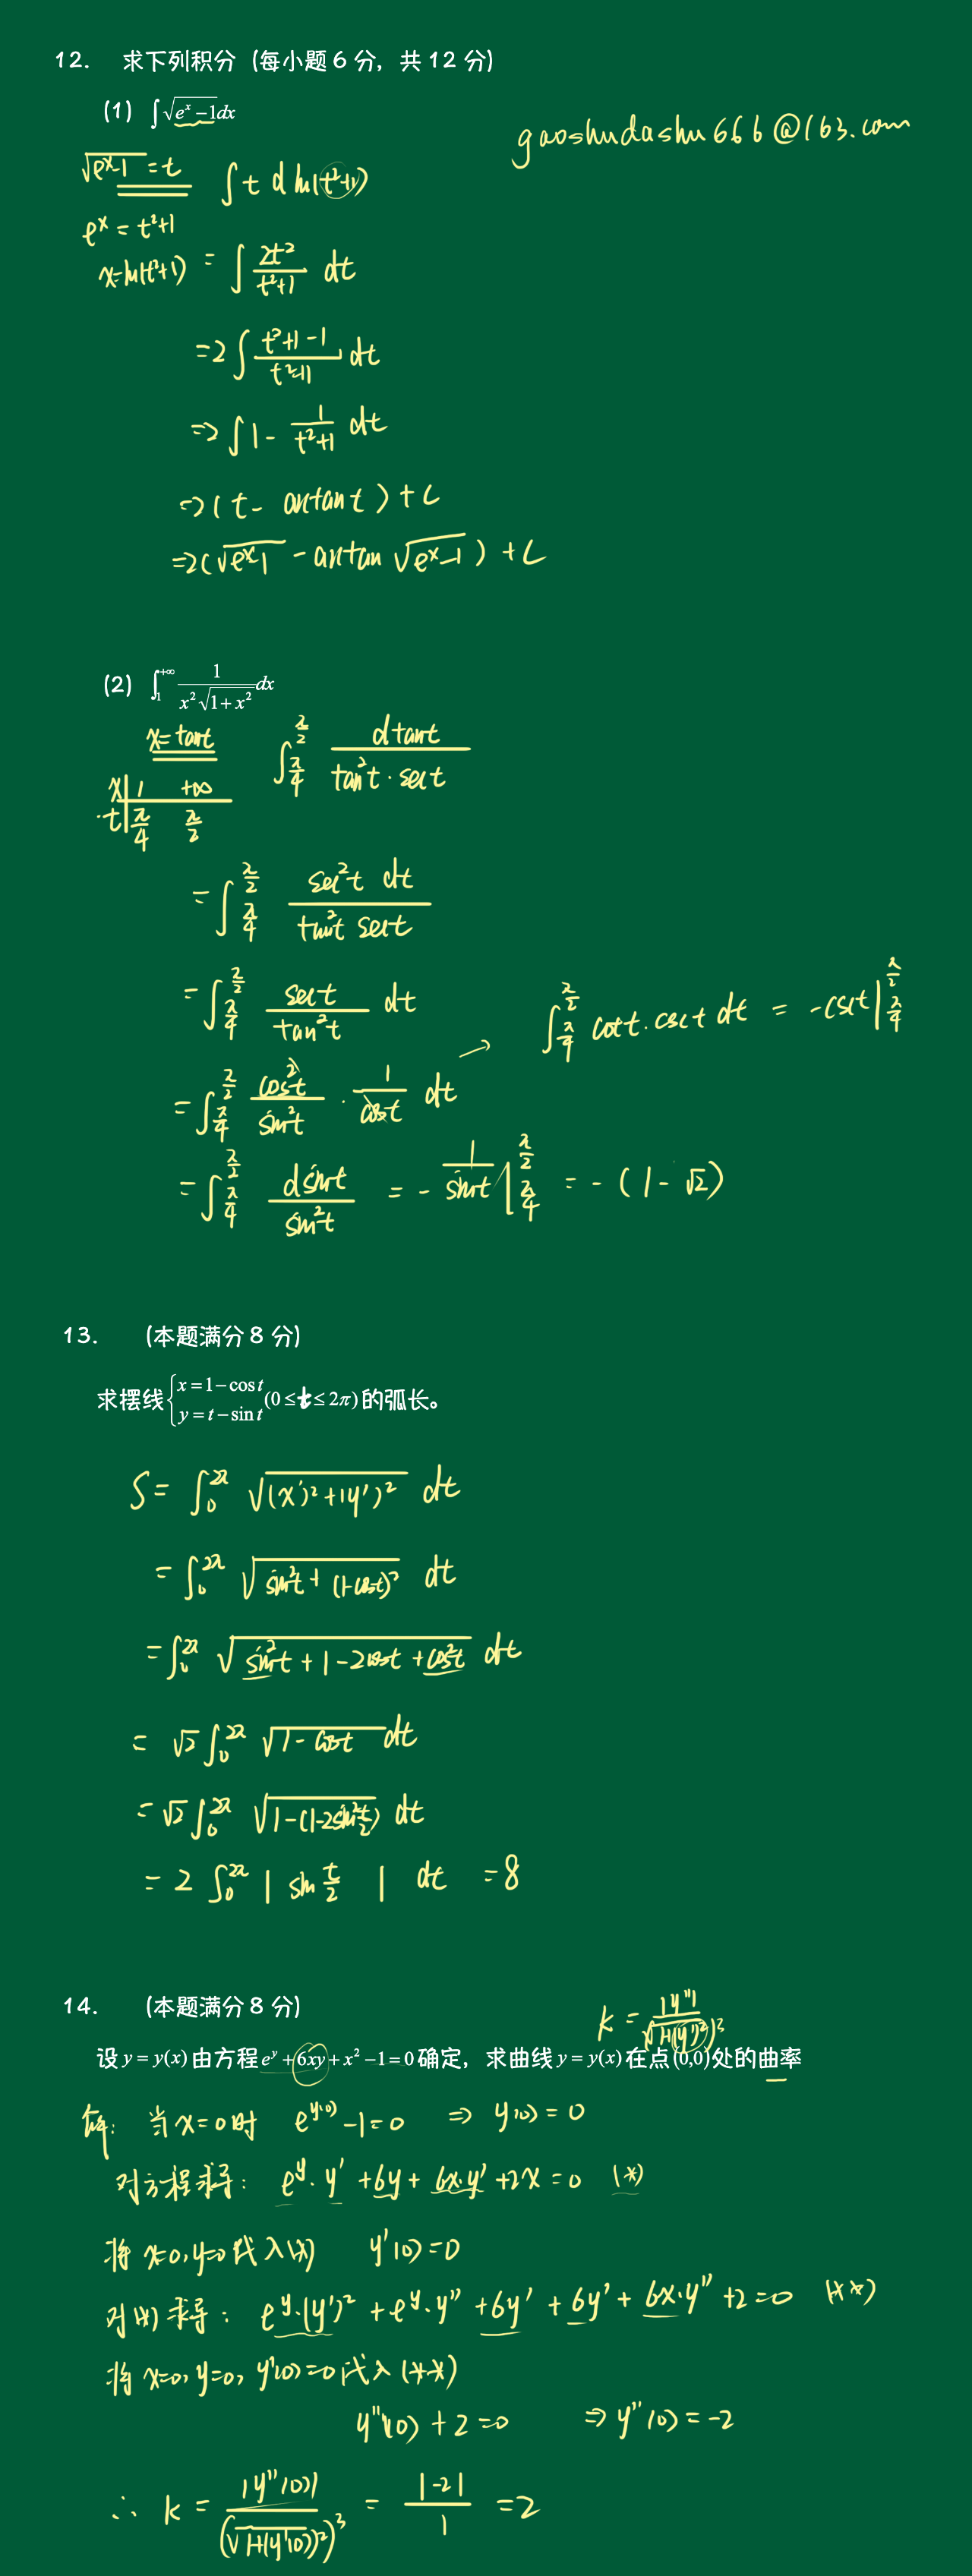 12. 求下列积分 (每小题 6 分, 共 12 分)
(1) ∫√(e^x −1)dx
gaoshudashu666@163.com
√(e^x−1) = t ∫ t d ln(t²+1)
e^x = t²+1
x=ln(t²+1) = ∫ 2t²/(t²+1) dt
=2∫ (t²+1−1)/(t²+1) dt
=2∫ 1 − 1/(t²+1) dt
=2(t − arctan t) + C
=2(√(e^x−1) − arctan √(e^x−1)) + C
(2) ∫_1^{+∞} 1/(x²√(1+x²)) dx
x=tant ∫_{π/4}^{π/2} dtant/(tan²t·sect)
x | 1 +∞
t | π/4 π/2
= ∫_{π/4}^{π/2} sec²t dt/(tan²t sect)
= ∫_{π/4}^{π/2} sect/tan²t dt
→ ∫_{π/4}^{π/2} cott·csct dt = −csct |_{π/4}^{π/2}
= ∫_{π/4}^{π/2} cos²t/sin²t · 1/cost dt
= ∫_{π/4}^{π/2} dsint/sin²t = − 1/sint |_{π/4}^{π/2} = −(1−√2)
13. (本题满分 8 分)
求摆线 {x=1−cost y=t−sint (0≤t≤2π) 的弧长。
S = ∫_0^{2π} √((x')²+(y')²) dt
= ∫_0^{2π} √(sin²t + (1−cost)²) dt
= ∫_0^{2π} √(sin²t + 1 − 2cost + cos²t) dt
= √2 ∫_0^{2π} √(1−cost) dt
= √2 ∫_0^{2π} √(1−(1−2sin²(t/2))) dt
= 2 ∫_0^{2π} |sin t/2| dt = 8
14. (本题满分 8 分)
k = |y''|/(√(1+(y')²))³
设 y=y(x) 由方程 e^y+6xy+x²−1=0 确定, 求曲线 y=y(x) 在点 (0,0) 处的曲率
解: 当x=0时 e^{y(0)} −1=0 ⇒ y(0)=0
对方程求导: e^y·y' + 6y + 6x·y' + 2x = 0 (*)
将 x=0, y=0 代入(*) y'(0)=0
对(*)求导: e^y·(y')² + e^y·y'' + 6y' + 6y' + 6x·y'' + 2 = 0 (**)
将 x=0, y=0, y'(0)=0 代入 (**)
y''(0) + 2 = 0 ⇒ y''(0) = −2
∴ k = |y''(0)|/(√(1+(y'(0))²))³ = |−2|/1 = 2